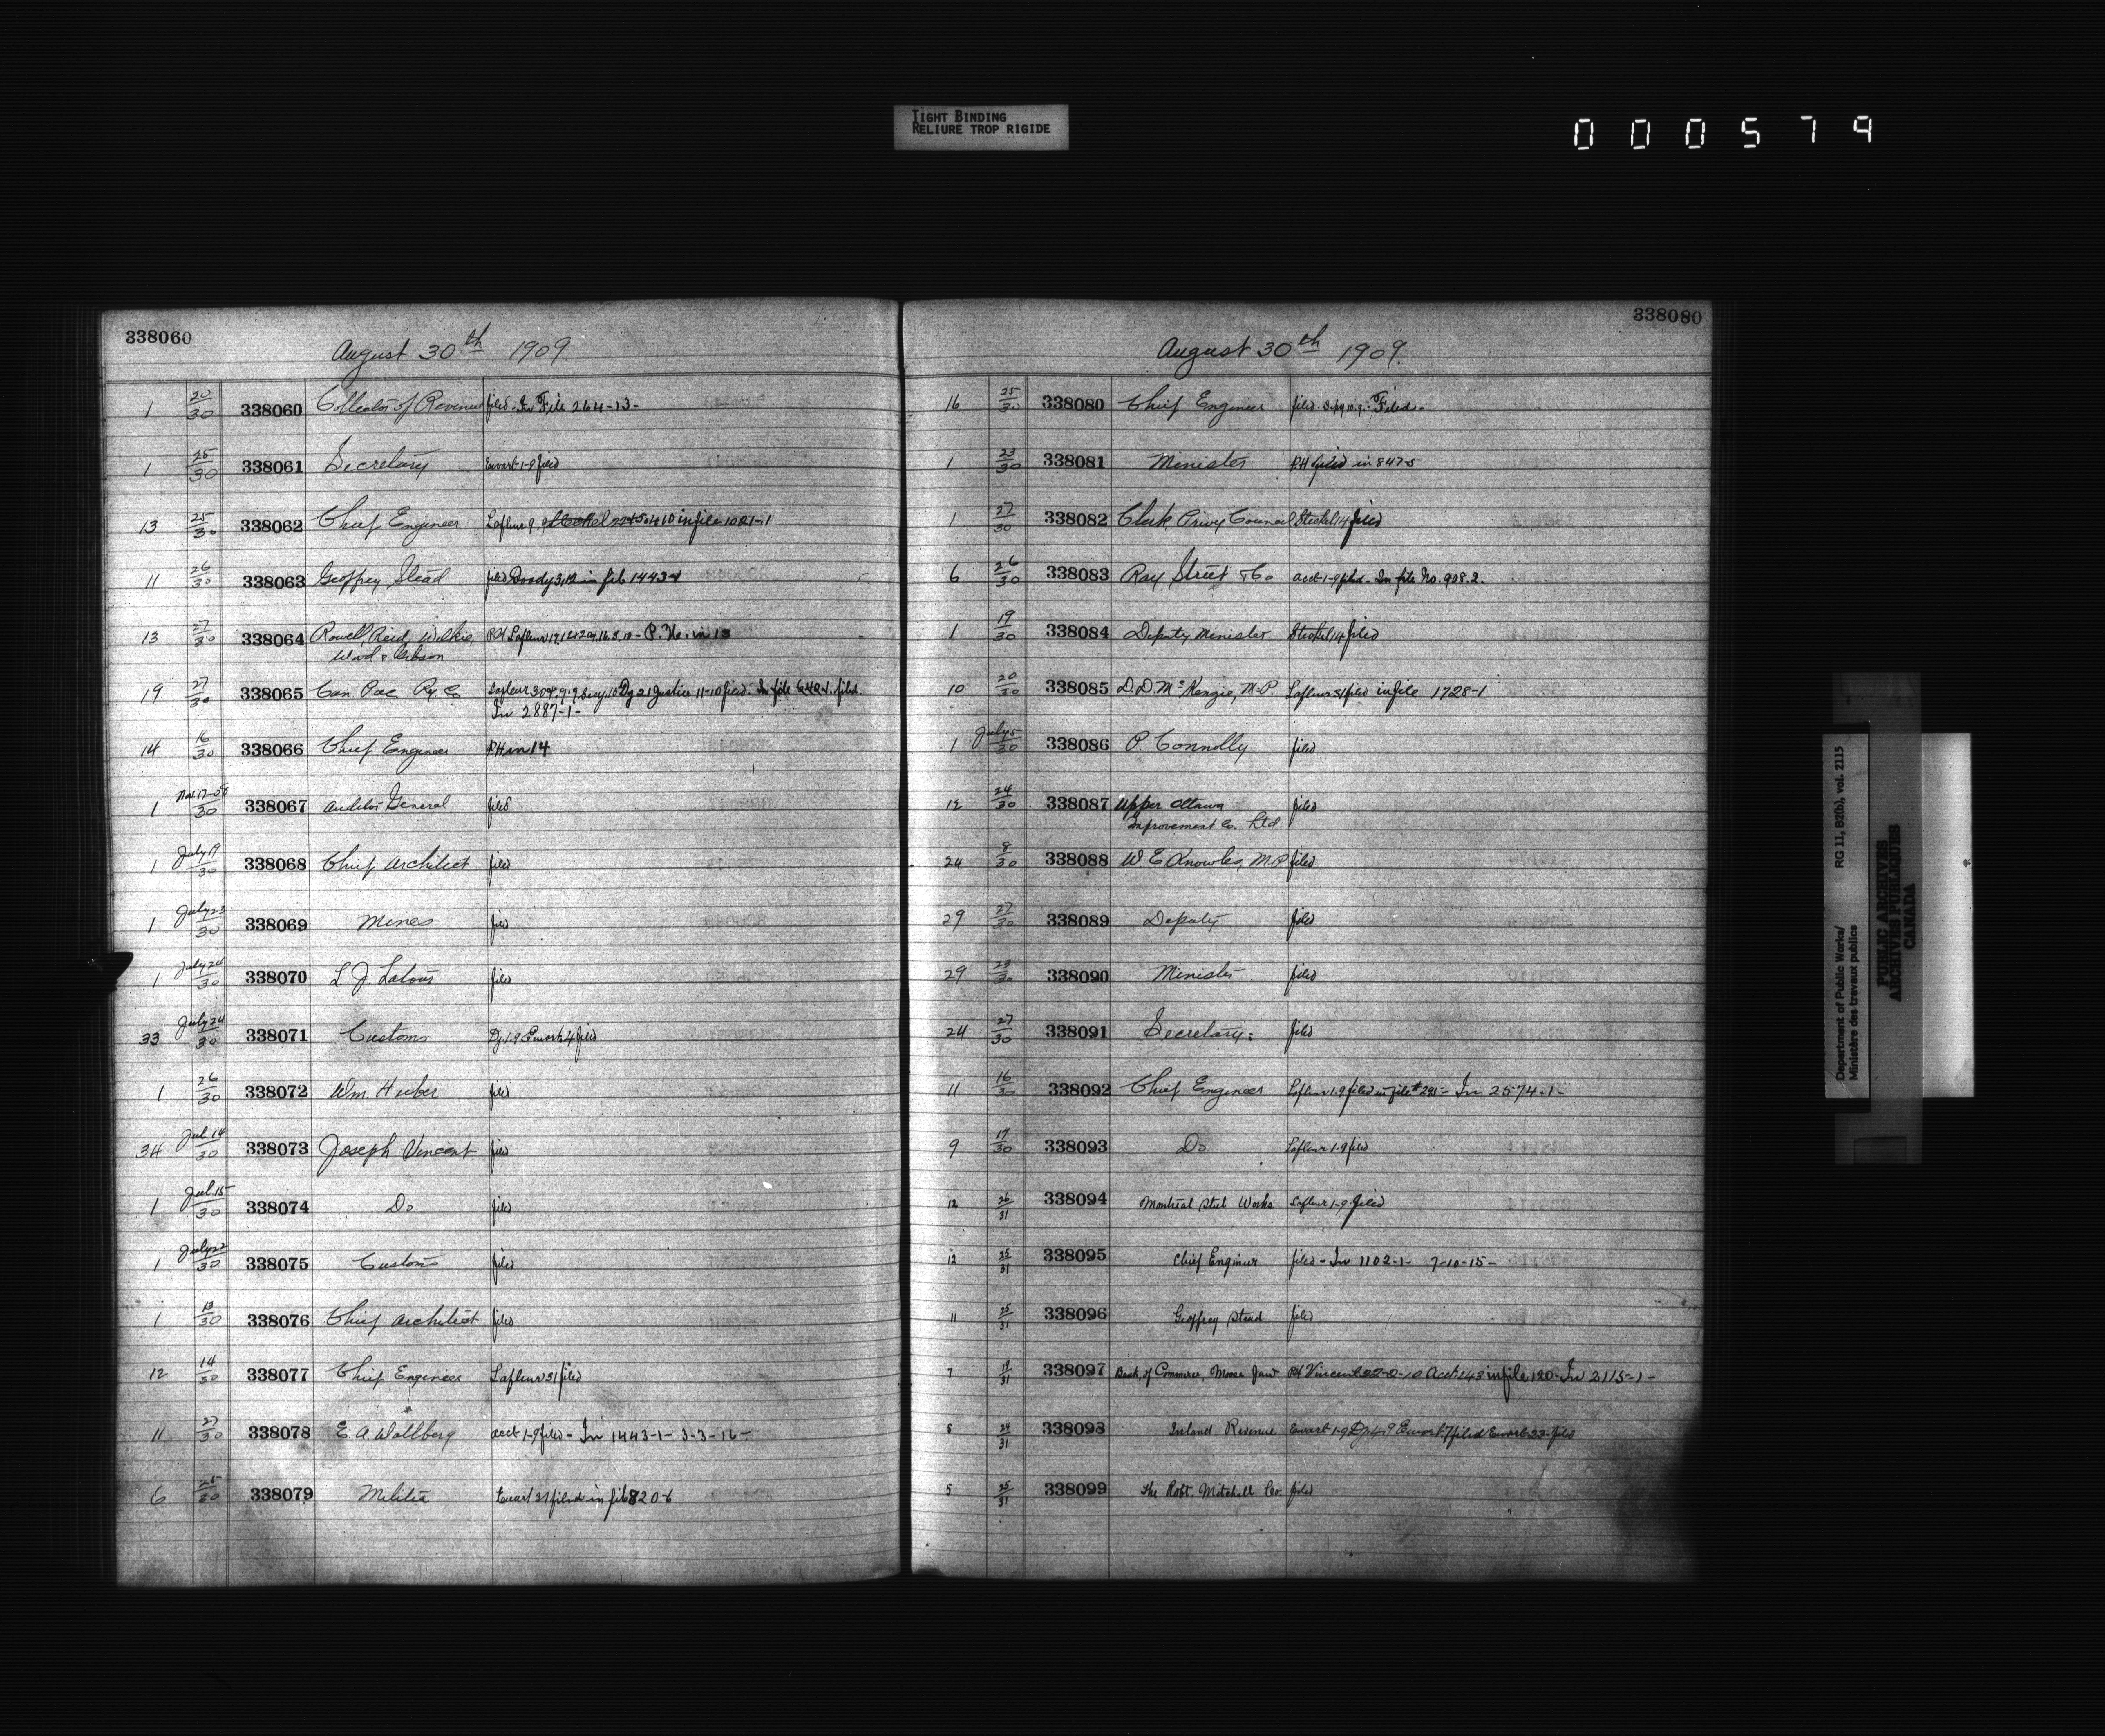 TIGHT BINDING
RELIURE TROP RIGIDE
000579
338060
August 30th 1909
1 20/30 338060 Collector of Revenue filed - In File 264-13-
1 25/30 338061 Secretary Ewart 1-9 filed
13 25/30 338062 Chief Engineer Lafleur 9. in file 1021-1
11 26/30 338063 Geoffrey Stead filed Doody 3,12 in file 1443-1
13 27/30 338064 Rowell, Reid, Wilkie, P.H. in 13
Wood & Gibson
19 27/30 338065 Can. Pac Ry Co Lafleur Justice 11-10 filed. In file 640-1. filed
In 2887-1-
14 16/30 338066 Chief Engineer P.H. in 14
1 Nov. 17-08/30 338067 Auditor General filed
1 July 19/30 338068 Chief Architect filed
1 July 23/30 338069 Mines filed
1 July 30 338070 L. J. Latour filed
33 July 24/30 338071 Customs Dy 1.9 Ewart 4 filed
1 26/30 338072 Wm. Huber filed
34 Jul. 14/30 338073 Joseph Vincent filed
1 Jul. 15/30 338074 Do filed
1 July 22/30 338075 Customs filed
1 13/30 338076 Chief Architect filed
12 14/30 338077 Chief Engineer Lafleur 31 filed
11 27/30 338078 E. A. Wallberg acct 1-9 filed - In 1443-1- 3-3-16-
6 25/30 338079 Militia Ewart 31 filed in file 820-6
338080
August 30th 1909.
16 25/30 338080 Chief Engineer filed. Filed-
1 23/30 338081 Minister P.H. filed in 847-5
1 27/30 338082 Clerk Privy Council Steckel 14 filed
6 26/30 338083 Ray Street & Co acct 1-9 filed - In file No. 908.2.
1 19/30 338084 Deputy Minister Steckel 14 filed
10 20/30 338085 D. D. McKenzie, M.P Lafleur 31 filed in file 1728-1
1 July 5/30 338086 P. Connolly filed
12 24/30 338087 Upper Ottawa filed
Improvement Co. Ltd
24 8/30 338088 W E Knowles, M.P filed
29 27/30 338089 Deputy filed
29 30 338090 Minister filed
24 27/30 338091 Secretary: filed
11 16/30 338092 Chief Engineer Lafleur 1.9 filed in file - In 2574-1-
9 17/30 338093 Do Lafleur 1-9 filed
12 26/31 338094 Montreal Steel Works Lafleur 1-9 filed
12 25/31 338095 Chief Engineer filed - In 1102-1- 7-10-15-
11 25/31 338096 Geoffrey Stead filed
7 31 338097 Bank of Commerce, Moose Jaw P.H. Vincent in file 120- In 2115-1-
5 24/31 338098 Inland Revenue Ewart 1-9 filed Ewart 23- filed
5 25/31 338099 The Robt. Mitchell Co. filed
Department of Public Works/ RG 11, B2(b), vol. 2115
Ministère des travaux publics
PUBLIC ARCHIVES
ARCHIVES PUBLIQUES
CANADA